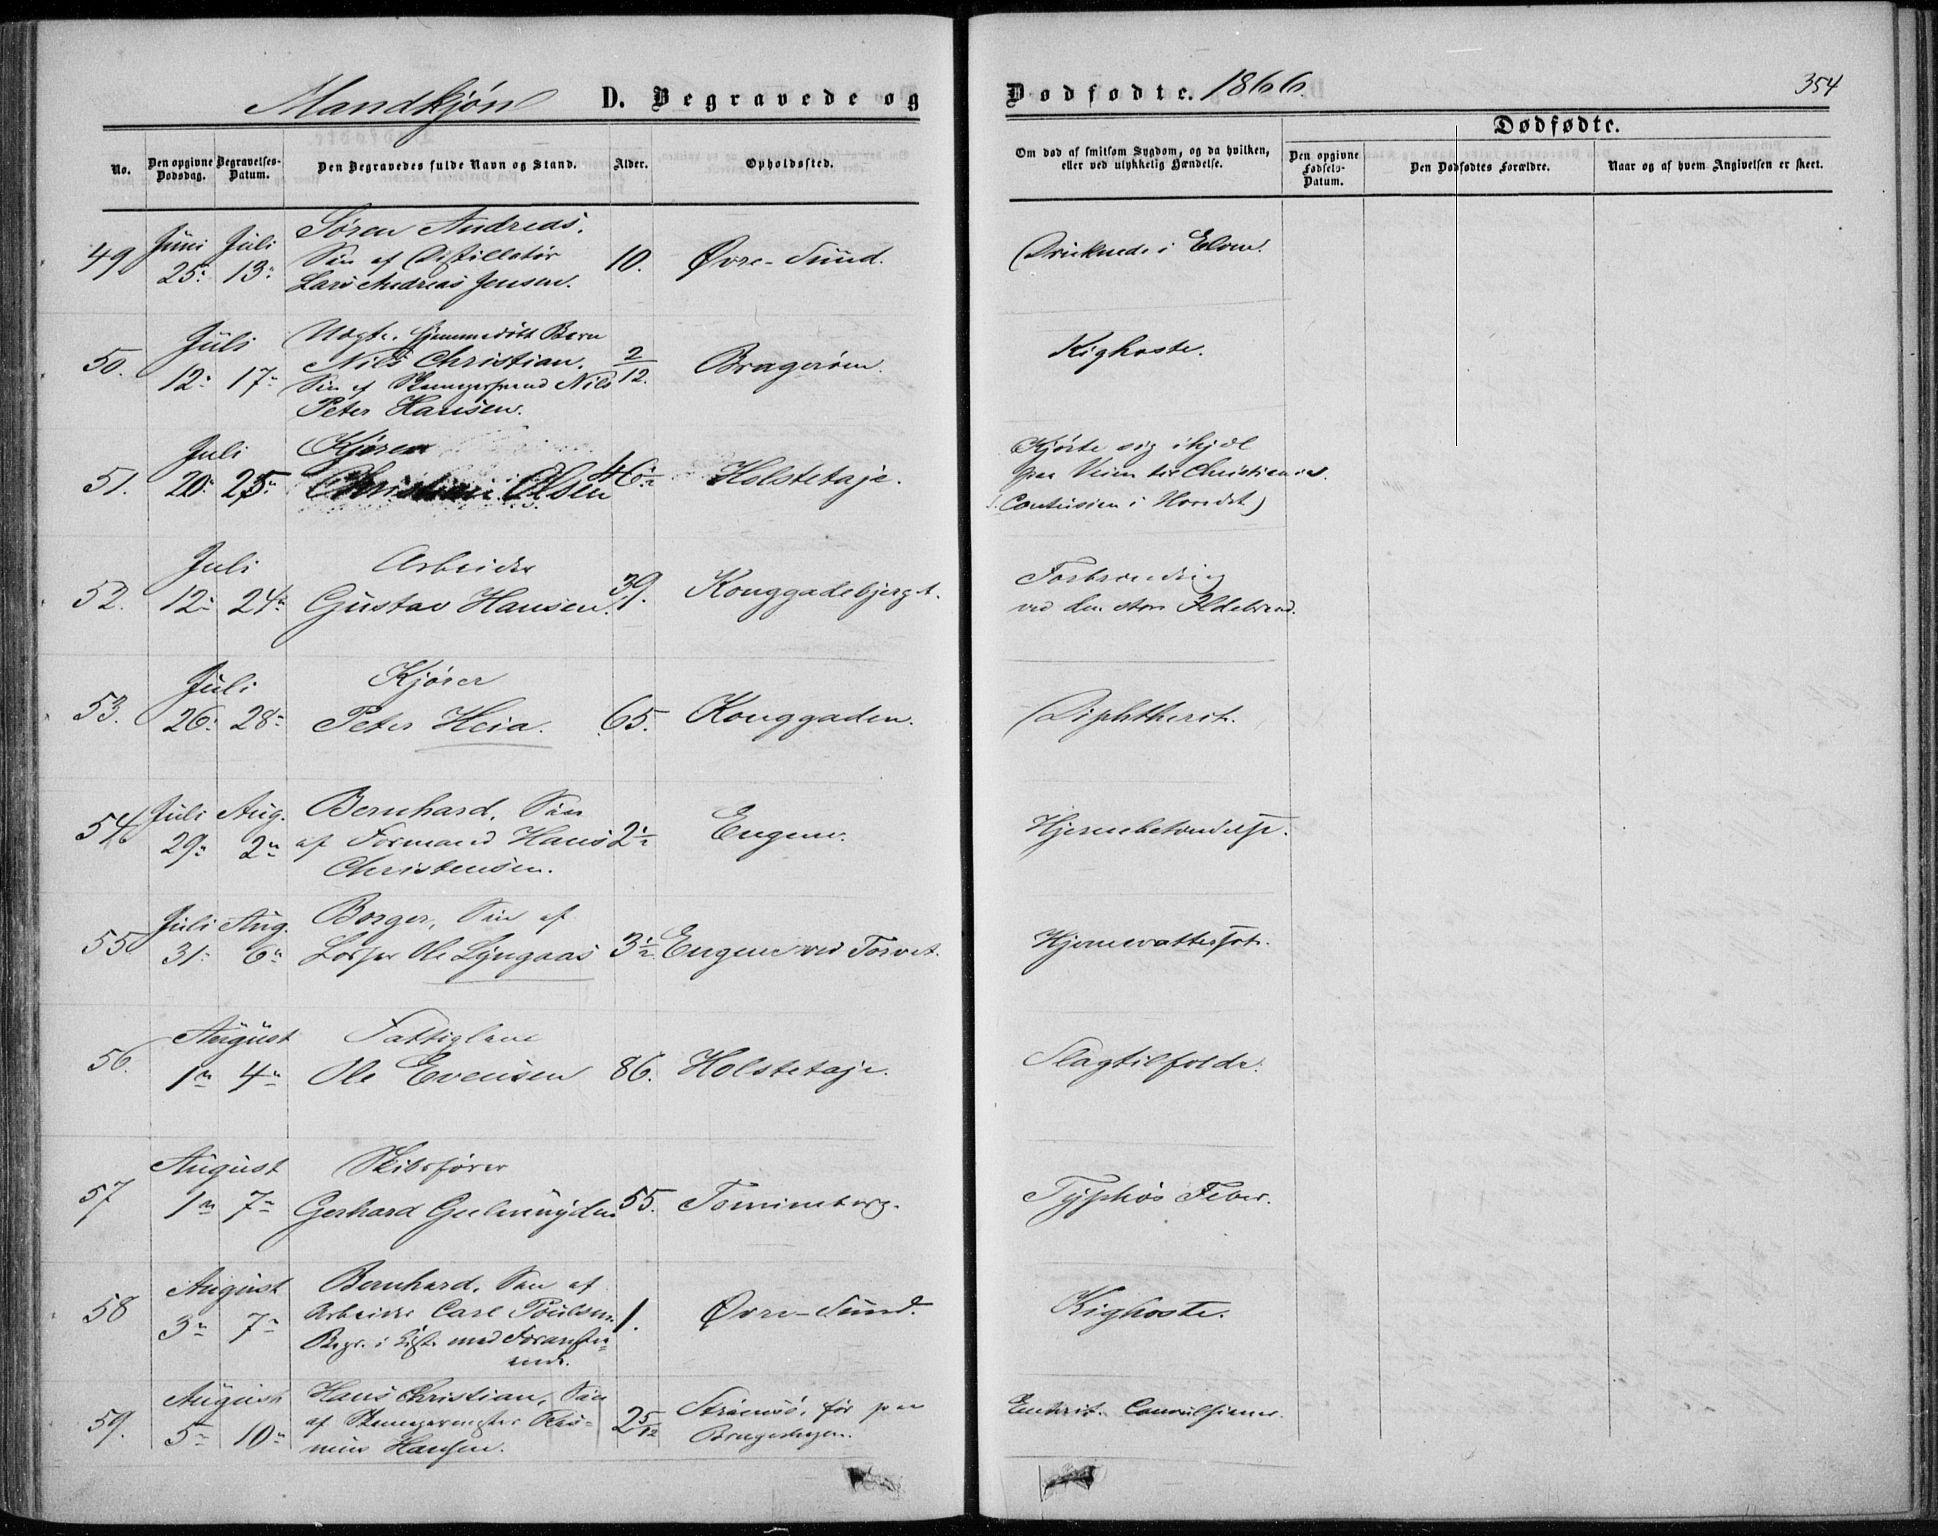 Mandkjøn D. Begravede og Dødfødte. 1866. 354
Dødfødte.
No. Den opgivne Dødsdag. Begravelses-Datum. Den Begravedes fulde Navn og Stand. Alder. Opholdssted. Om død af smitsom Sygdom, og da hvilken, eller ved ulykkelig Hændelse. Den opgivne Fødsels-Datum. Den Dødfødtes Forældre. Naar og af hvem Angivelsen er skeet.
Juni Juli Søren Andreas,
49 25 13 Søn af Distillatør 10. Øvre-Sund. Druknede i Elven.
Lars Andreas Jensen.
Juli Uægte. Hjemmedøbt Barn
50. 12 17 Nils Christian. 2/12. Bragerøen. Kighoste.
Søn af Nils
Peter Hansen.
Juli Kjører Kjørte sig ihjel
51. 20 25 Olsen 46 1/2 Holstetaje. paa Veien til Christiania.
Contusion i Hovedet)
Juli Arbeider Forbrænding
52. 12 24 Gustav Hansen. 39. Konggadebjergt. ved den store Ildebrand.
Juli Kjører
53. 26 28 Peter Heia. 65. Konggaden. Diphtherit.
Juli Aug. Bernhard, Søn
54 29 2 af Formand Hans 2 1/2 Engene. Hjernebetændelse.
Christensen.
Juli Aug. Borger, Søn af
55 31 6 Ole Lyngaas 3 1/2 Engene ved Torvet. Hjernevattersot.
August Fattiglem
56. 1 4 Ole Evensen 86. Holstetaje. Slagtilfælde.
August Skibsfører
57 1 7 Gerhard Gulmuyden 55. Tominborg. Typhøs Feber.
August Bernhard, Søn af
58 3 7 Arbeider Carl Poulsen. 1. Øvre-Sund. Kighoste.
Begr. i Kiste med Foranstaa-
ende.
August Hans Christian, Søn Strømsø, før paa
59. 5 10 af Ras- 2 5/12 Bragernes. Enterit. Convulsioner.
mus Hansen.